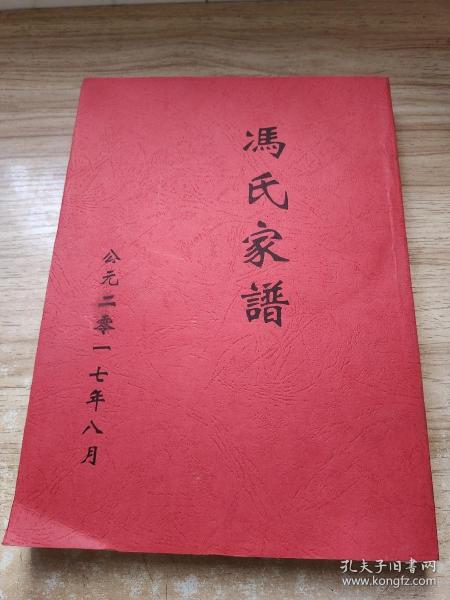 馮氏家譜
公元二零一七年八月
孔夫子旧书网
www.kongfz.com